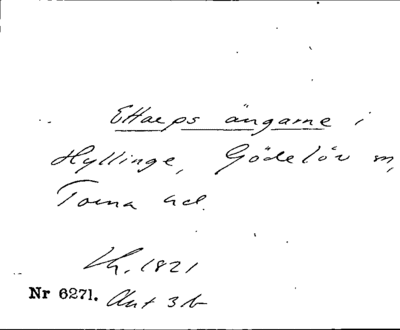 Ellaeps ängarne i
Hyllinge, Gödelöv sn,
Torna hd.
Lh. 1821
Nr 6271. Akt 3 b